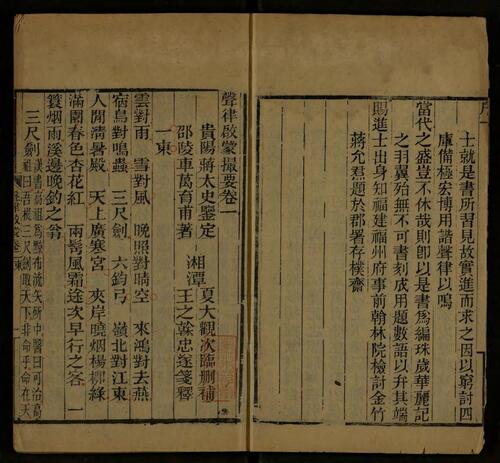 士就是書所習見故實進而求之因以窮討四
庫備極宏博用諧聲律以鳴
當代之盛豈不休哉則卽以是書爲編珠歲華麗記
之羽翼殆無不可書刻成用題數語以弁其端
賜進士出身知福建福州府事前翰林院檢討金竹
蔣允焄題於郡署存樸齋
聲律啟蒙撮要卷一
貴陽蔣太史鑒定 湘潭夏大觀次臨刪補
邵陵車萬育甫著 王之榦忠遂箋釋
一東
雲對雨 雪對風 晚照對晴空 來鴻對去燕
宿鳥對鳴蟲 三尺劍 六鈞弓 嶺北對江東
人間清暑殿 天上廣寒宮 夾岸曉烟楊柳綠
滿園春色杏花紅 兩鬂風霜途次早行之客 一
簑烟雨溪邊晚釣之翁
三尺劍漢書高祖爲黥布流矢所中醫曰可治高
祖曰吾提三尺劍取天下非命乎命在天